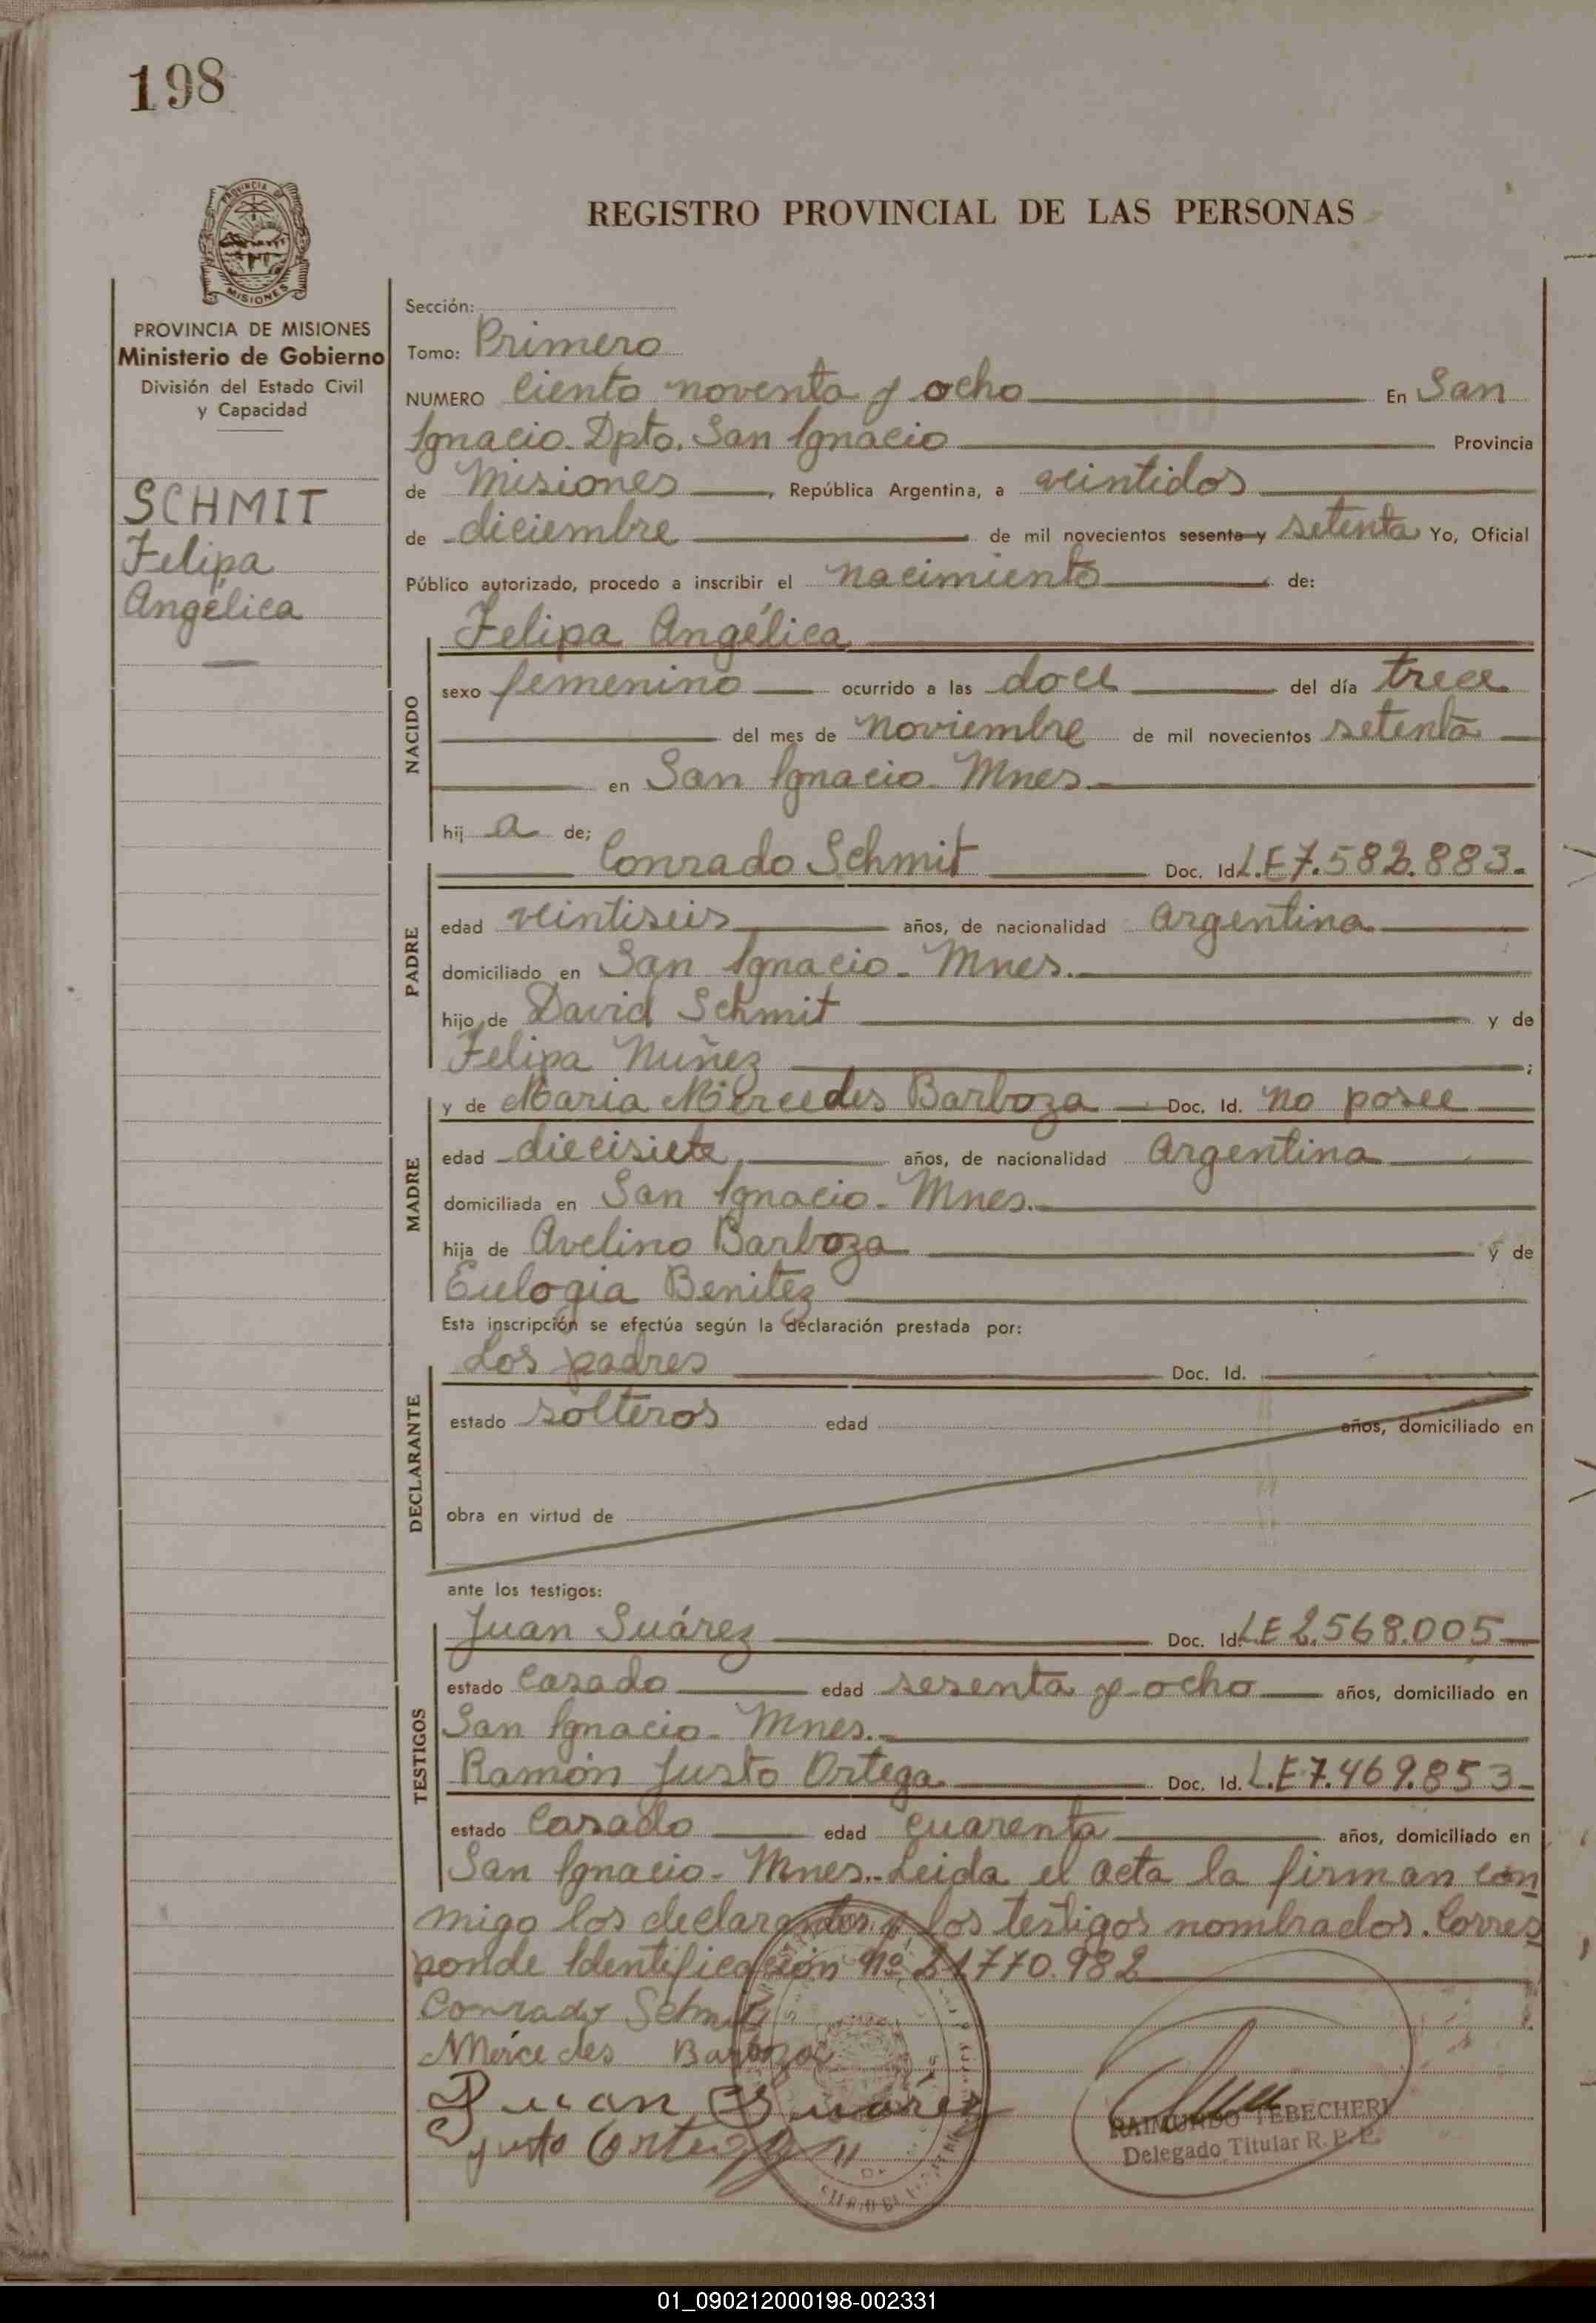 198
REGISTRO PROVINCIAL DE LAS PERSONAS
PROVINCIA DE MISIONES
Ministerio de Gobierno
División del Estado Civil
y Capacidad
SCHMIT
Felipa
Angélica
Sección:
Tomo: Primero
NUMERO Ciento noventa y ocho En San
Ignacio - Dpto. San Ignacio Provincia
de Misiones, República Argentina, a veintidos
de diciembre de mil novecientos sesenta y setenta Yo, Oficial
Público autorizado, procedo a inscribir el nacimiento de:
NACIDO
Felipa Angélica
sexo femenino ocurrido a las doce del día trece
del mes de noviembre de mil novecientos setenta
en San Ignacio - Mnes.
hij a de;
PADRE
Conrado Schmit Doc. Id. L.E 7.582.883.
edad veintiseis años, de nacionalidad Argentina
domiciliado en San Ignacio - Mnes.
hijo de David Schmit y de
Felipa Nuñez ;
MADRE
y de Maria Mercedes Barboza Doc. Id. no posee
edad diecisiete años, de nacionalidad Argentina
domiciliada en San Ignacio - Mnes.
hija de Avelino Barboza y de
Eulogia Benitez
Esta inscripción se efectúa según la declaración prestada por:
DECLARANTE
Los padres Doc. Id.
estado solteros edad años, domiciliado en
obra en virtud de
ante los testigos:
TESTIGOS
Juan Suárez Doc. Id. L.E 2.568.005
estado Casado edad sesenta y ocho años, domiciliado en
San Ignacio - Mnes.
Ramón Justo Ortega Doc. Id. L.E 7.469.853
estado Casado edad cuarenta años, domiciliado en
San Ignacio - Mnes. - Leida el acta la firman con
migo los declarantes y los testigos nombrados. Corres
ponde Identificación Nº 21770.982
Conrado Schmit
Mercedes Barboza
Juan Suárez
Justo Ortega
RAIMUNDO TEBECHERI
Delegado Titular R. P. P.
01_090212000198-002331